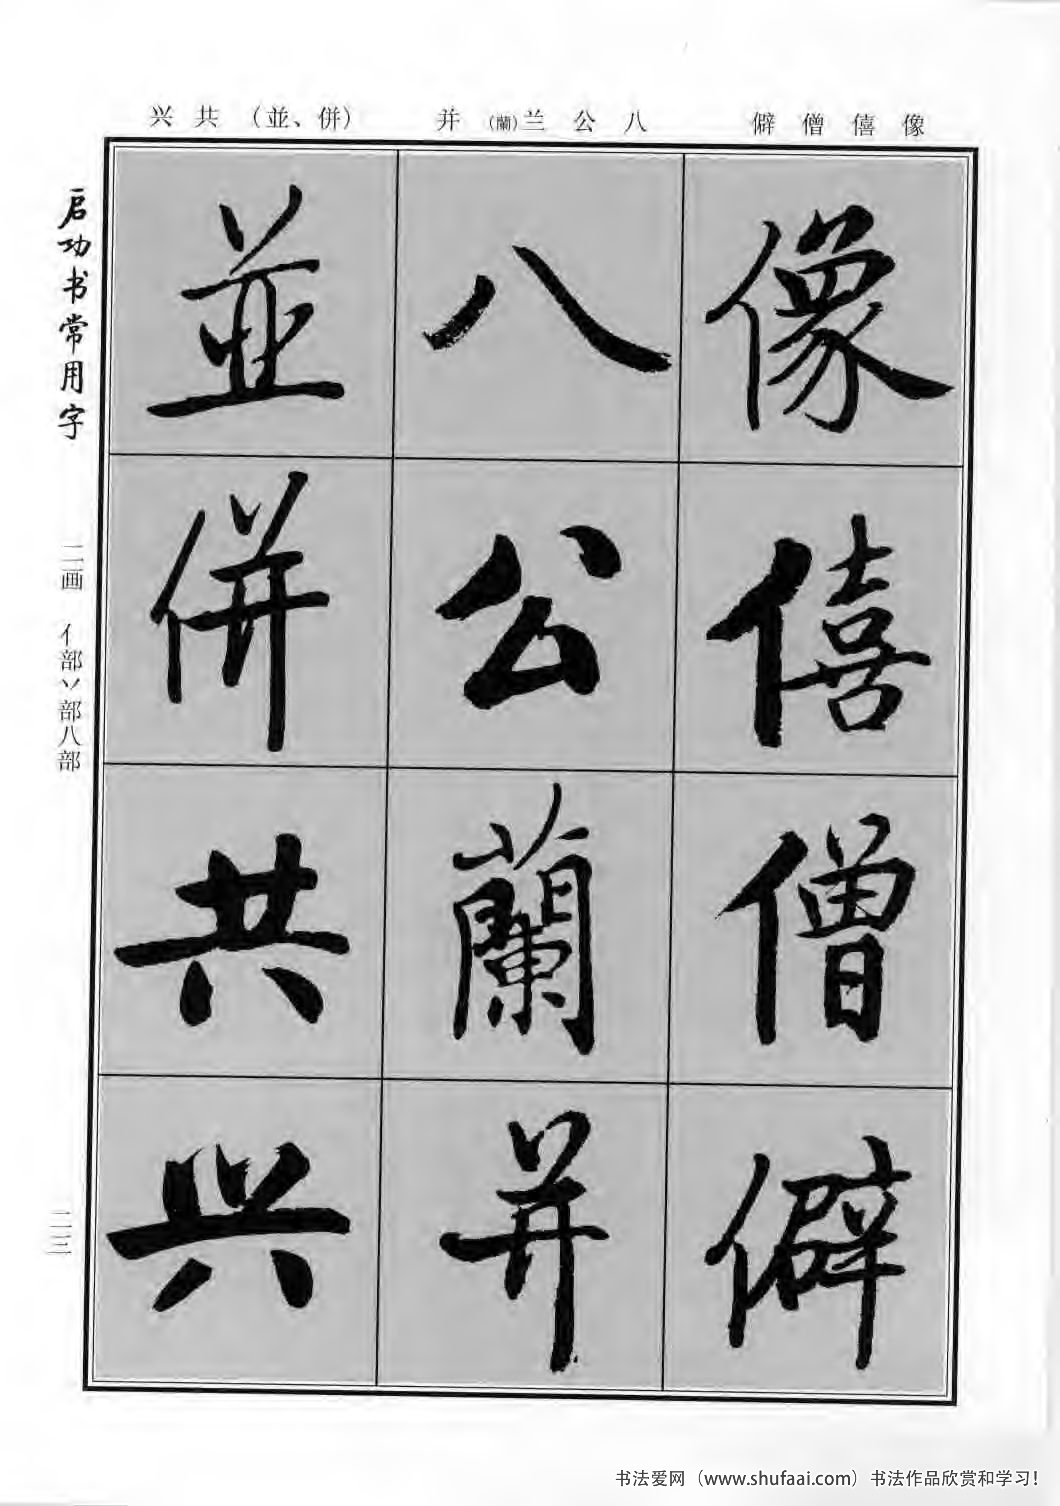 像僖僧僻
八公兰(蘭)并
(並、併)共兴
像僖僧僻
八公蘭并
並併共兴
启功书常用字
二画 亻部丷部八部
二三
书法爱网（www.shufaai.com）书法作品欣赏和学习！